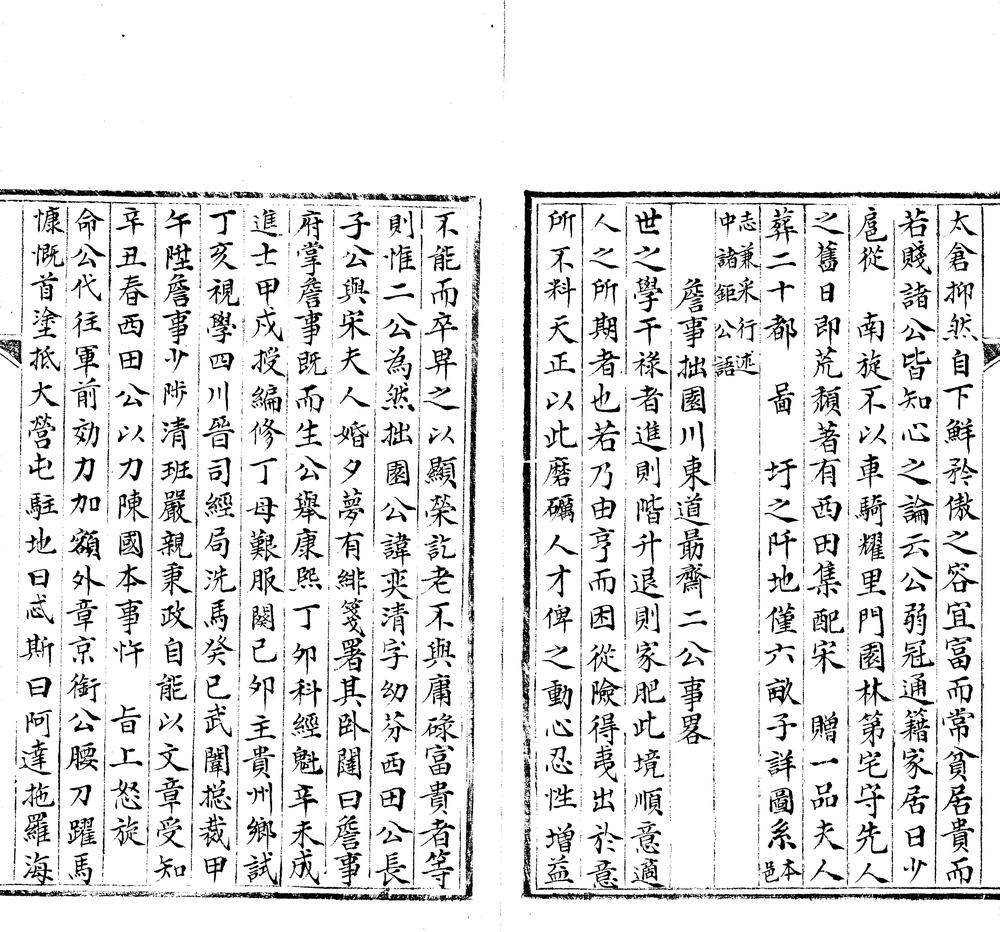 太倉抑然自下鮮矜傲之容宜富而常貧居貴而
若賤諸公皆知心之論云公弱冠通籍家居日少
扈從　南旋不以車騎耀里門園林第宅守先人
之舊日即荒頹著有西田集配宋　贈一品夫人
葬二十都　啚　圩之阡地僅六畝子詳圖系本邑
志兼采行述
中諸鉅公語
詹事拙園川東道勗齋二公事畧
世之學干祿者進則階升退則家肥此境順意適
人之所期者也若乃由亨而困從險得夷出於意
所不料天正以此磨礪人才俾之動心忍性增益
不能而卒畀之以顯榮訖老不與庸碌富貴者等
則惟二公為然拙園公諱奕清字幼芬西田公長
子公與宋夫人婚夕夢有緋箋署其卧闥曰詹事
府掌詹事既而生公舉康熙丁卯科經魁辛未成
進士甲戍授編修丁母艱服闋己夘主貴州鄉試
丁亥視學四川晉司經局洗馬癸巳武闈摠裁甲
午陞詹事少陟清班嚴親秉政自能以文章受知
辛丑春西田公以力陳國本事忤　旨上怒旋
命公代往軍前効力加額外章京銜公腰刀躍馬
慷慨首塗抵大營屯駐地曰忒斯曰阿達拖羅海